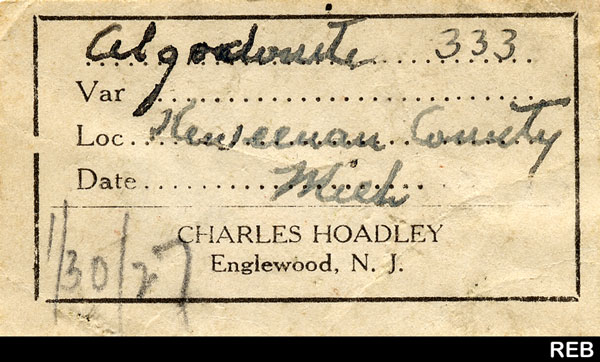 Algodonite 333
Var
Loc. Keweenan County
Date Mich
1/30/27
CHARLES HOADLEY
Englewood, N. J.
REB